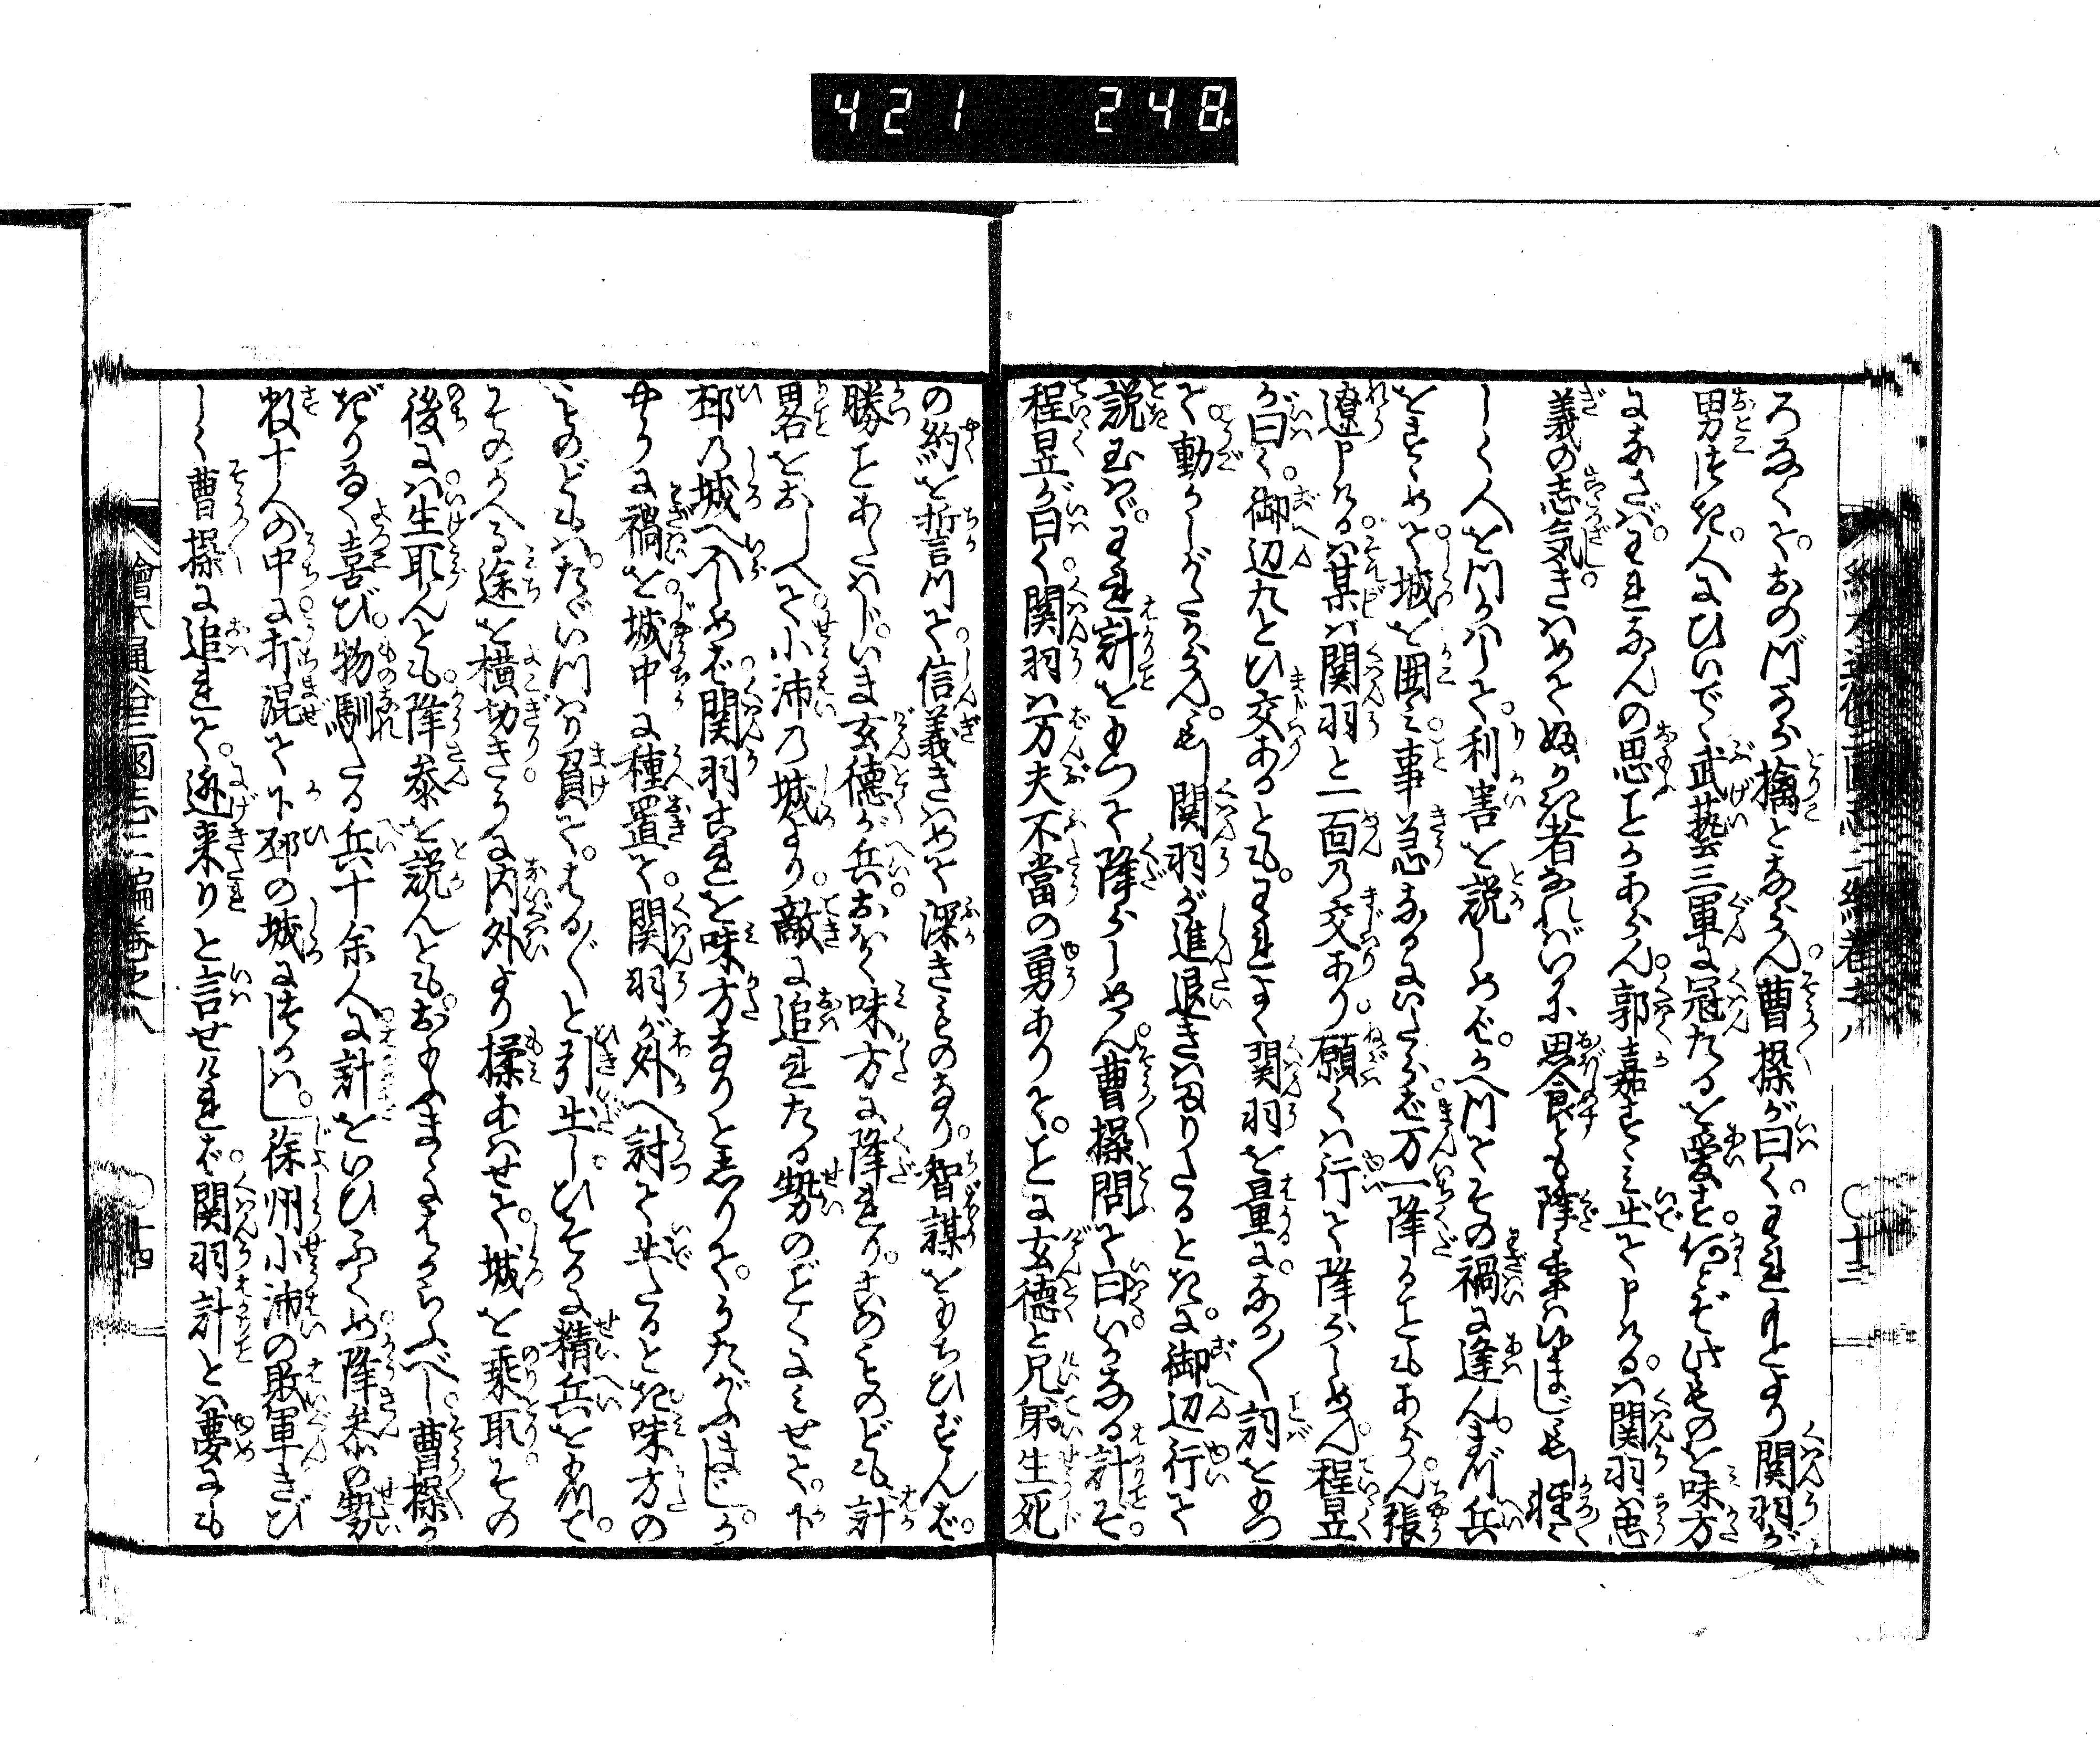 421 248
ろなくておのづから擒とならん曹操が曰くわれもとより関羽が
男づき人にひいで武藝三軍に冠たるを愛す何とぞ此ものを味方
になさばわれなんの思ことかあらん郭嘉すゝみ出て申けるは関羽忠
義の志気きはめてふかき者なればいかに思食とも降り来はゆまじもし軽々
しく人をつかはして利害を説しめばかへつてその禍に逢んまづ兵
をすゝめて城を囲み事急なるにいたらば万一降ることもあらん張
遼申けるは某は関羽と一面の交あり願くは行て降らしめん程昱
が曰く御辺たとひ交あるともわれよく関羽を量になか〳〵詞をもつ
て動かしがたからんもし関羽が進退きはまりたるときに御辺行て
説玉はゞわれ計をもつて降らしめん曹操問て曰いかなる計ぞ
程昱が曰く関羽は万夫不當の勇ありてことに玄徳と兄弟生死
の約を誓つて信義きはめて深きものなり智謀をもちひずんば
勝ことあたはじいま玄徳が兵おほく味方に降れりこのものどもに計
畧をおしへて小沛の城より敵に追れたる勢のごとくみせて下
邳の城へ入しめば関羽これを味方なりと思りてうたがふまじか
やうに禍を城中に種置て関羽が外へ討て出たるとき味方の
ものどもはたゞいつはり負てはる〴〵と引出しひそかに精兵をもつて
そのかへる途を横切きうに内外より揉あはせて城を乗取その
後には生取んとも降参を説んともおもふまゝにはからふべし曹操か
ぎりなく喜び物馴たる兵十余人に計をいひふくめ降参の勢
数十人の中に打混て下邳の城につかはし徐州小沛の敗軍きび
しく曹操に追れて逃来りと言せければ関羽計とは夢にも
繪本通俗三國志二編巻之八
〇十三
〇十四